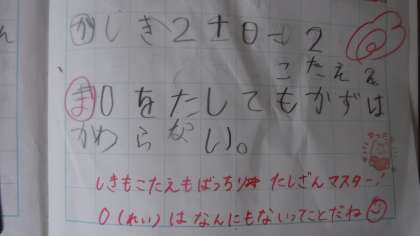 か しき2+0=2
こたえ 2
ま 0をたしてもかずは
かわらない。
しきもこたえもばっちり たしざんマスター!
0(れい)はなんにもないってことだね